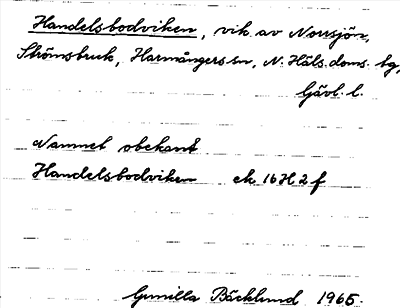 Handelsbodviken, vik av Norrsjön,
Strömsbruk, Harmångers sn, N. Häls. doms. tg,
Gävl. l.
Namnet obekant
Handelsbodviken ek. 16H2f
Gunilla Bäcklund 1965.